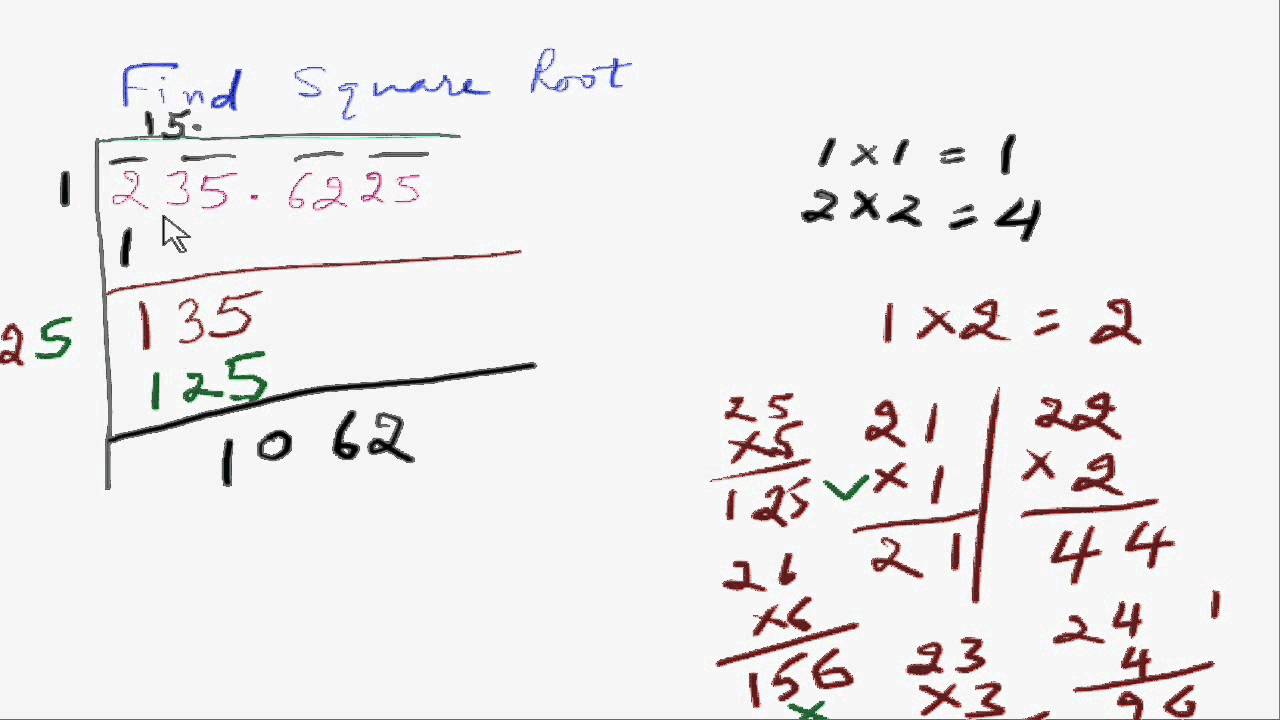 Find Square Root
15.
1 2 35 . 62 25
1
135
25
125
10 62
1 × 1 = 1
2 × 2 = 4
1 × 2 = 2
25
×5
125
21
× 1
21
22
× 2
44
26
×6
156
×
23
×3
24
4
96
1